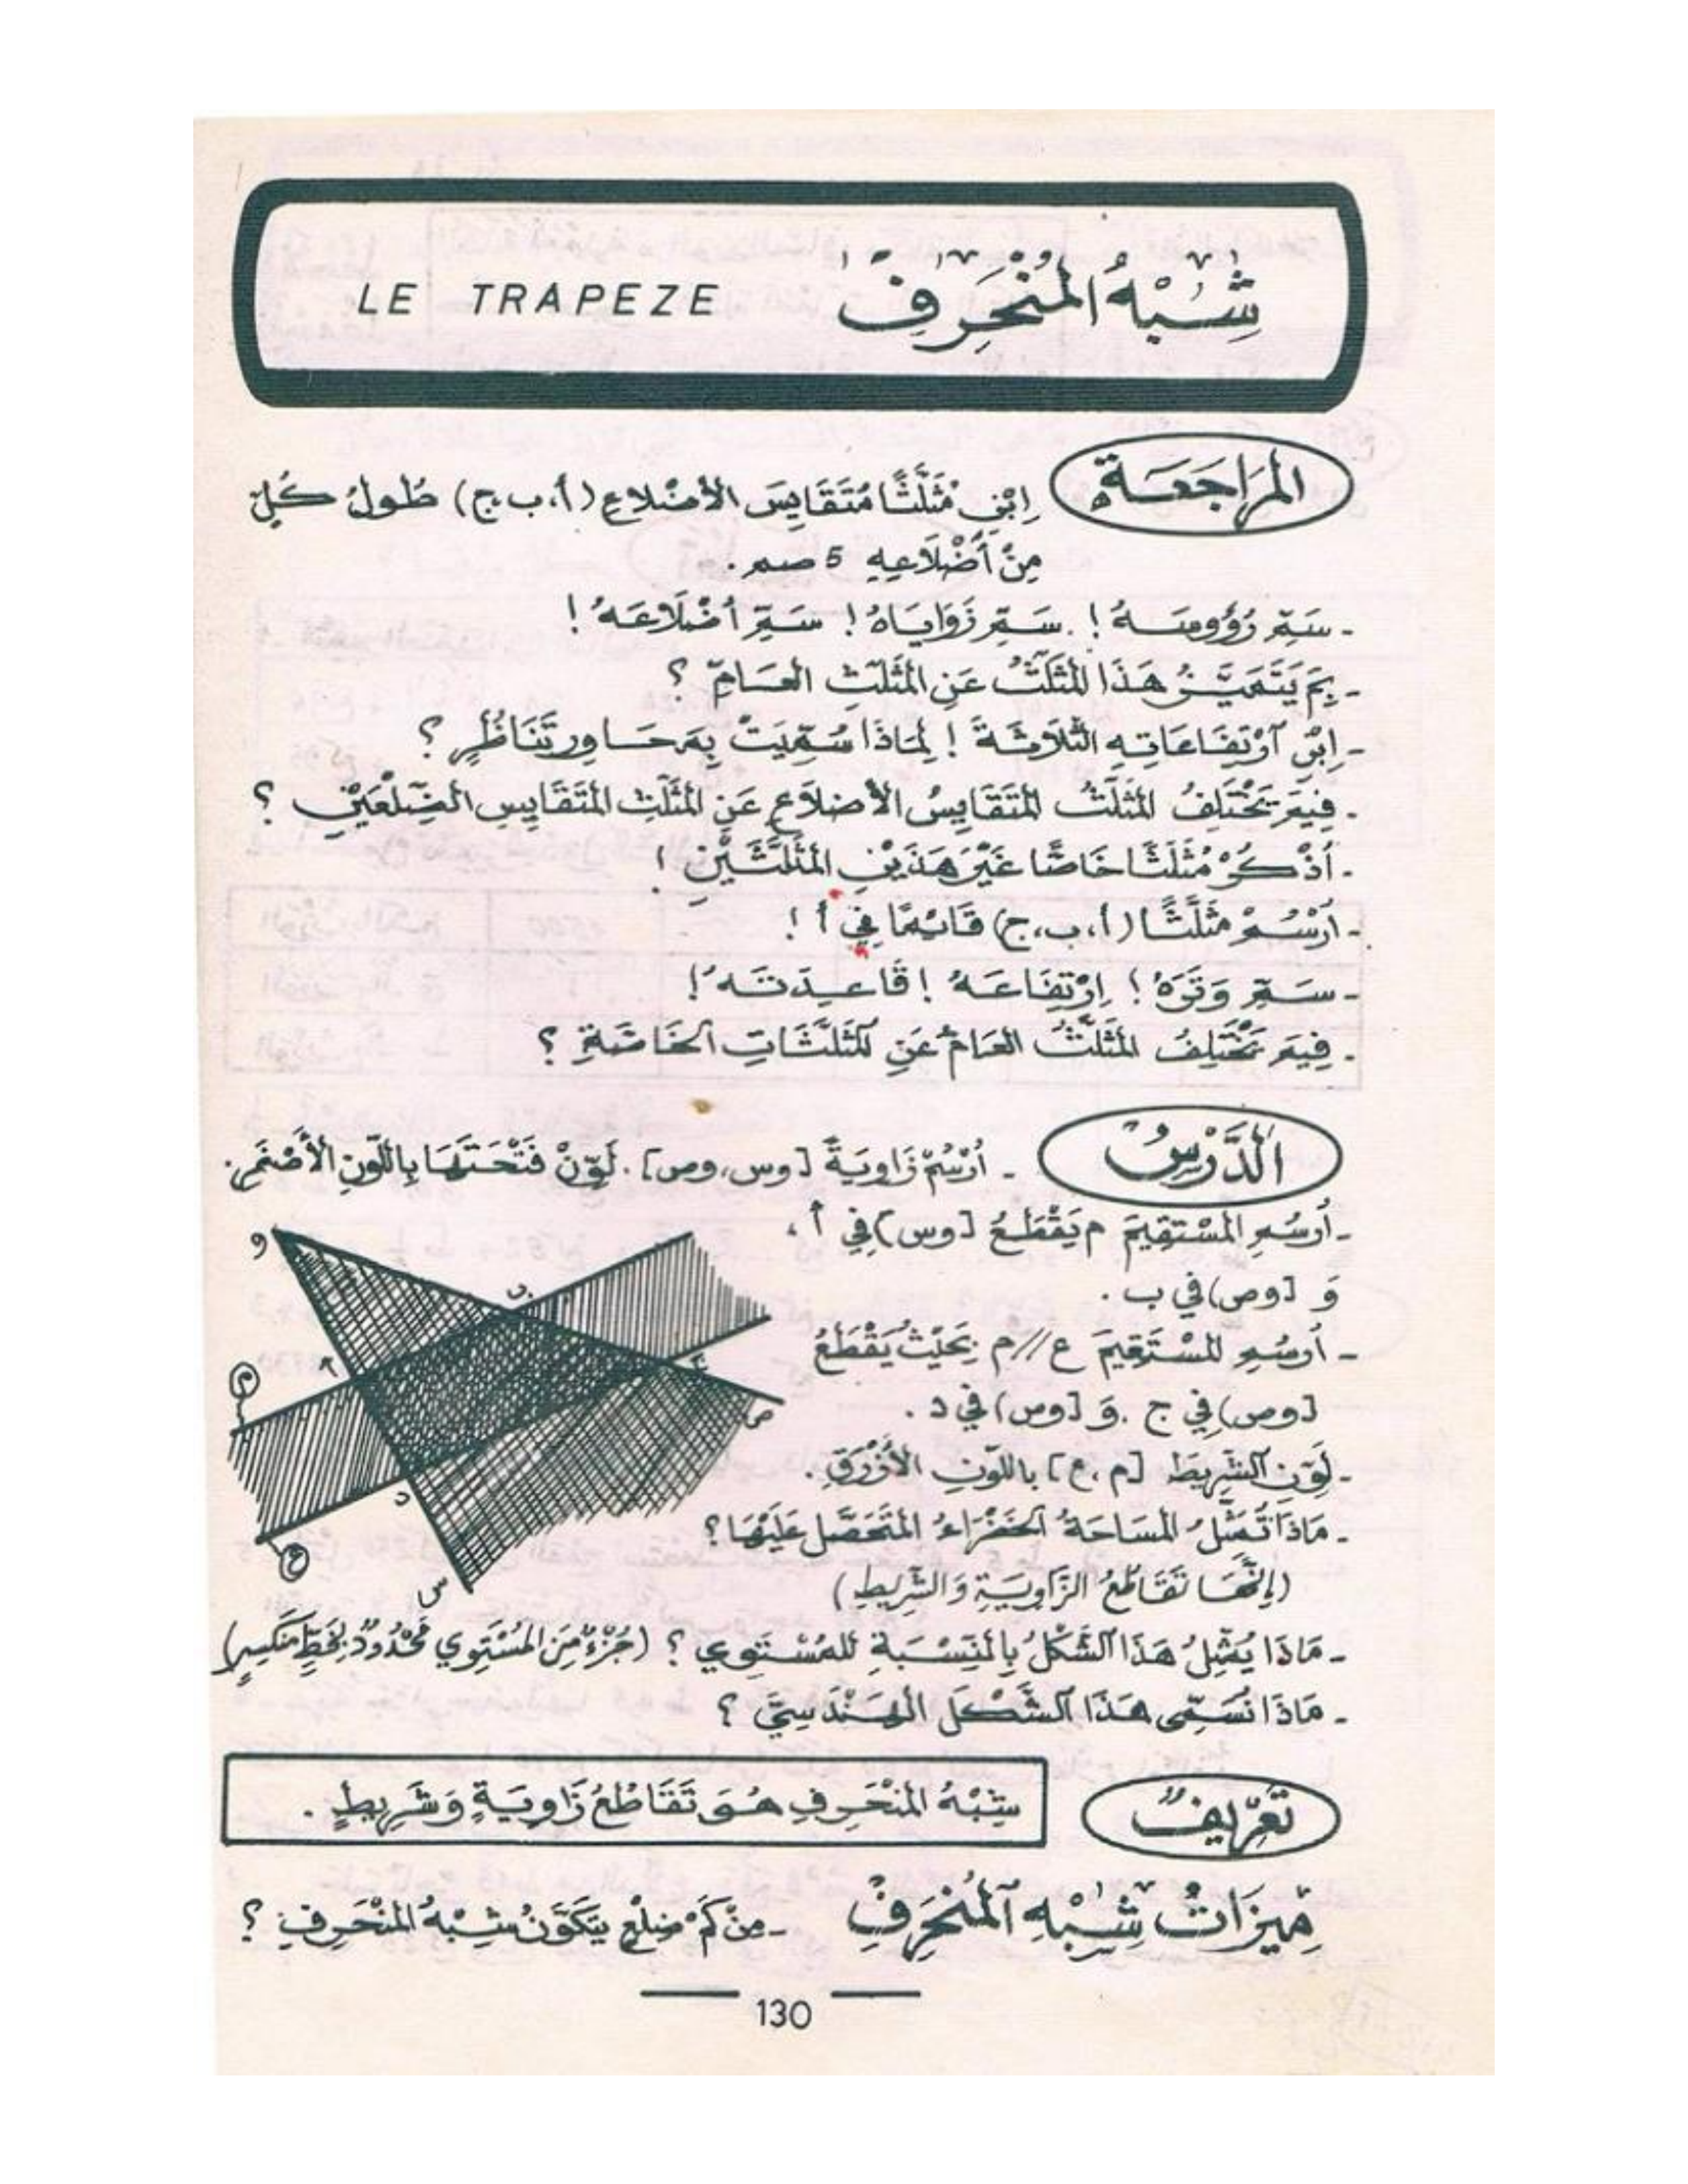 شِبْهُ المُنْحَرِفِ LE TRAPEZE
المُرَاجَعَة
اِبْنِ مُثَلَّثًا مُتَقَايِسَ الأَضْلَاعِ (أ، ب، ج) طُولُ كُلٍّ
مِنْ أَضْلَاعِهِ 5 صم .
- سَمِّ رُؤُوسَهُ ! . سَمِّ زَوَايَاهُ ! سَمِّ أَضْلَاعَهُ !
- بِمَ يَتَمَيَّزُ هَذَا المُثَلَّثُ عَنِ المُثَلَّثِ العَامِّ ؟
- اِبْنِ آرْتِفَاعَاتِهِ الثَّلَاثَةَ ! لِمَاذَا سُمِّيَتْ بِمَحَاوِرِ تَنَاظُرٍ ؟
- فِيمَ يَخْتَلِفُ المُثَلَّثُ المُتَقَايِسُ الأَضْلَاعِ عَنِ المُثَلَّثِ المُتَقَايِسِ الضِّلْعَيْنِ ؟
- أُذْكُرْ مُثَلَّثًا خَاصًّا غَيْرَ هَذَيْنِ المُثَلَّثَيْنِ !
- اُرْسُمْ مُثَلَّثًا (أ، ب، ج) قَائِمًا فِي أ !
- سَمِّ وَتَرَهُ ! اِرْتِفَاعَهُ ! قَاعِدَتَهُ !
- فِيمَ يَخْتَلِفُ المُثَلَّثُ العَامُّ عَنِ المُثَلَّثَاتِ الخَاصَّةِ ؟
الدَّرْسُ
- اُرْسُمْ زَاوِيَةً [وس، وص] . لَوِّنْ فَتْحَتَهَا بِاللَّوْنِ الأَصْفَرِ .
- أَرْسُمِ المُسْتَقِيمَ م يَقْطَعُ [وس) فِي أ ،
وَ [وص) في ب .
- أَرْسُمِ المُسْتَقِيمَ ع // م بِحَيْثُ يَقْطَعُ
[وص) فِي ج . وَ [وس) فِي د .
- لَوِّنِ الشَّرِيطَ [م ، ع] بِاللَّوْنِ الأَزْرَقِ .
- مَاذَا تُمَثِّلُ المِسَاحَةُ الخَضْرَاءُ المُتَحَصَّلُ عَلَيْهَا ؟
(إِنَّهَا تَقَاطُعُ الزَّاوِيَةِ وَالشَّرِيطِ)
- مَاذَا يُمَثِّلُ هَذَا الشَّكْلُ بِالنِّسْبَةِ لِلمُسْتَوِي ؟ (جُزْءٌ مِنَ المُسْتَوِي مَحْدُودٌ بِخَطٍّ مُنْكَسِرٍ)
- مَاذَا نُسَمِّي هَذَا الشَّكْلَ الهَنْدَسِيَّ ؟
و
ب
أ
م
ص
د
ع
س
تَعْرِيفٌ
شِبْهُ المُنْحَرِفِ هُوَ تَقَاطُعُ زَاوِيَةٍ وَشَرِيطٍ .
مِيزَاتُ شِبْهِ المُنْحَرِفِ - مِنْ كَمْ ضِلْعٍ يَتَكَوَّنُ شِبْهُ المُنْحَرِفِ ؟
130